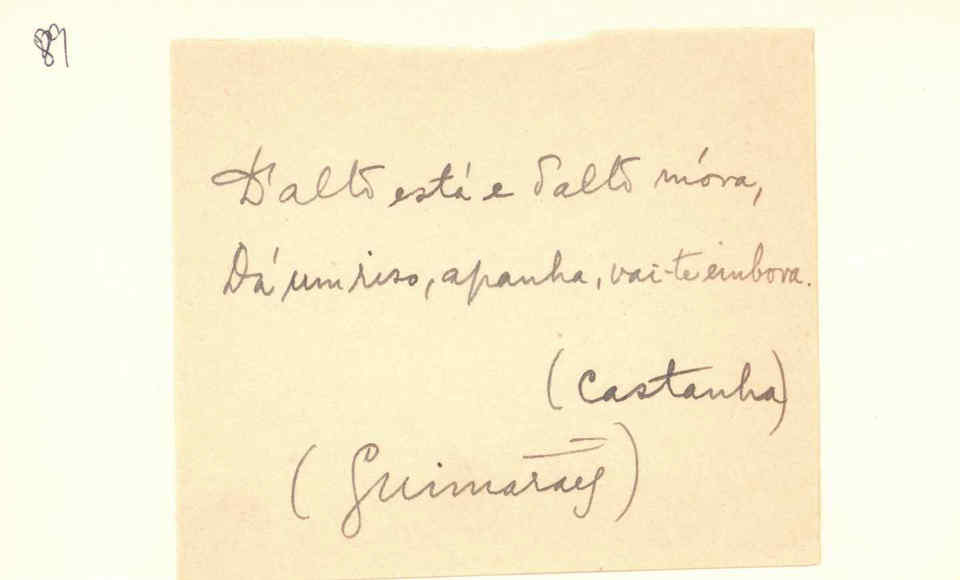 89
D'alto está e d'alto móra,
Dá um riso, apanha, vai-te embora.
(Castanha)
(Guimarães)